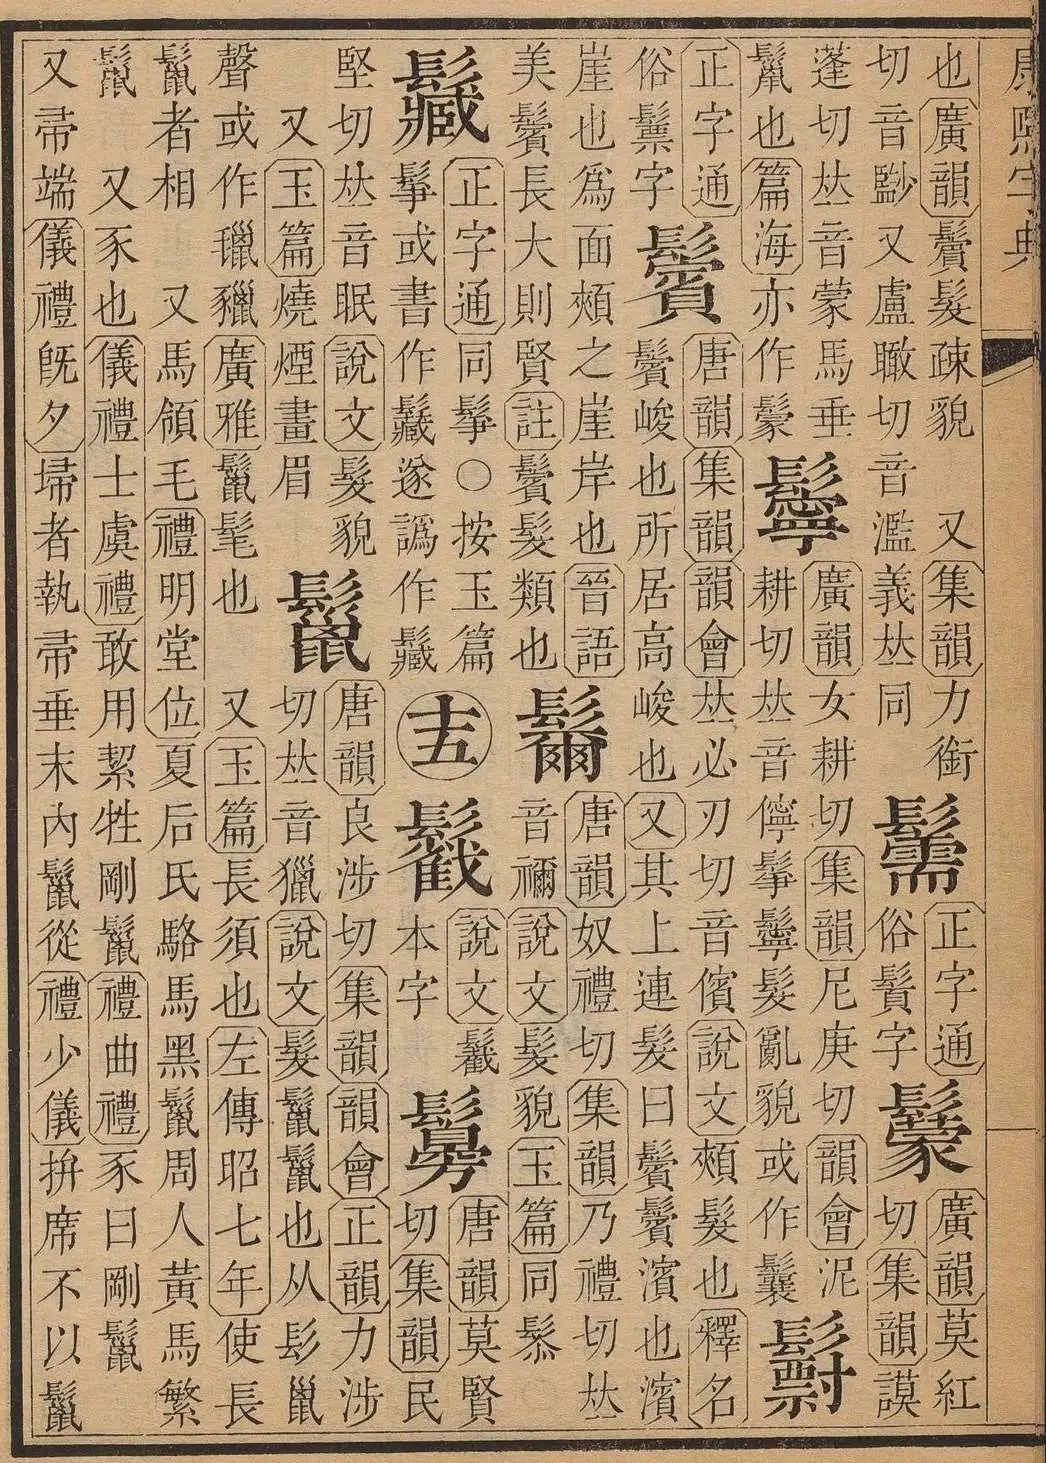 康熙字典
也廣韻鬢髮疎貌 又集韻力銜
切音又盧瞰切音濫義𠀤同
正字通
俗鬚字
廣韻莫紅
切集韻謨
蓬切𠀤音蒙馬垂
鬣也篇海亦作
鬡
廣韻女耕切集韻尼庚切韻會泥
耕切𠀤音儜鬇鬡髮亂貌或作鬤
正字通
俗字
鬢
唐韻集韻韻會𠀤必刃切音儐說文頰髮也釋名
鬢峻也所居高峻也又其上連髮曰鬢鬢濱也濱
崖也為面頰之崖岸也晉語
美鬢長大則賢註鬢髮類也
唐韻奴禮切集韻乃禮切𠀤
音禰說文髮貌玉篇同
正字通同鬇○按玉篇
鬇或書作遂譌作
十五
說文
本字
唐韻莫賢
切集韻民
堅切𠀤音眠說文髮貌
又玉篇燒煙畫眉
鬣
唐韻良涉切集韻韻會正韻力涉
切𠀤音獵說文髮鬣鬣也从髟巤
聲或作獵廣雅鬣髦也 又玉篇長須也左傳昭七年使長
鬣者相 又馬領毛禮明堂位夏后氏駱馬黑鬣周人黃馬繁
鬣 又豕也儀禮士虞禮敢用絜牲剛鬣禮曲禮豕曰剛鬣
又帚端儀禮旣夕埽者執帚垂末內鬣從禮少儀拚席不以鬣